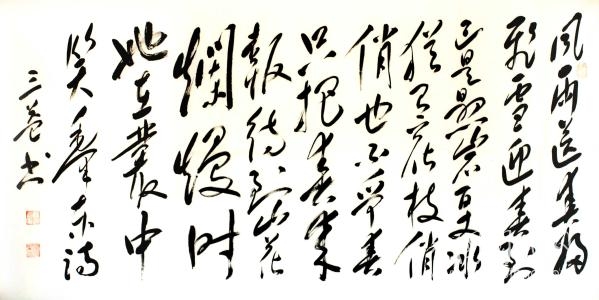 风雨送春归
飞雪迎春到
已是悬岩百丈冰
犹有花枝俏
俏也不争春
只把春来
报待到山花
烂熳时
她在丛中
笑毛泽东诗
三 书